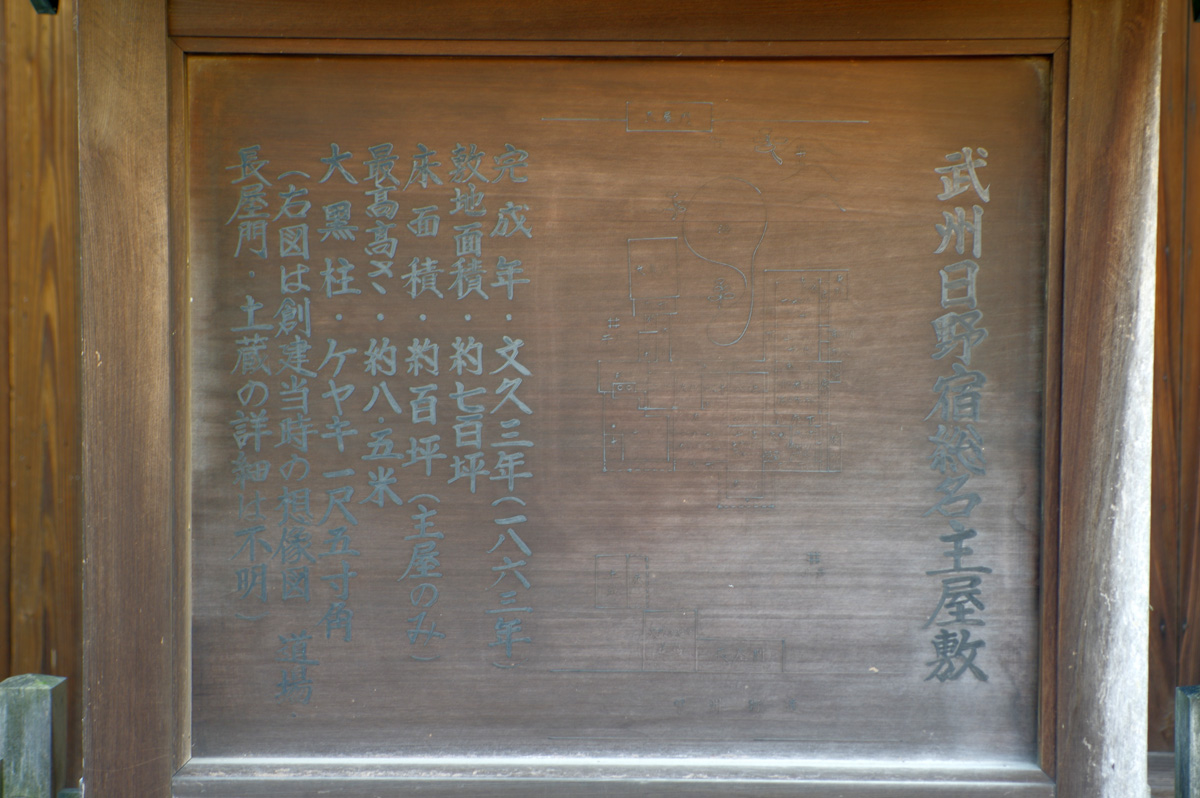 武州日野宿総名主屋敷
完成年・文久三年(一八六三年)
敷地面積・約七百坪
床面積・約百坪(主屋のみ)
最高高さ・約八・五米
大黒柱・ケヤキ一尺五寸角
(右図は創建当時の想像図 道場
長屋門・土蔵の詳細は不明)